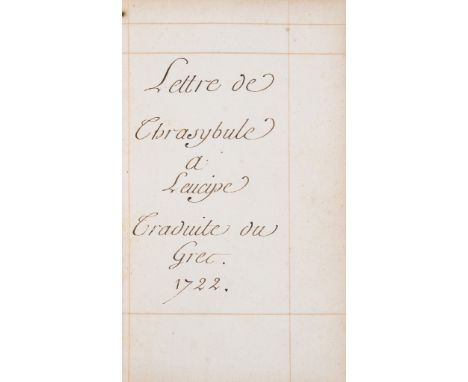 Lettre de
Thrasybule
a
Leucipe
Traduite du
Grec.
1722.